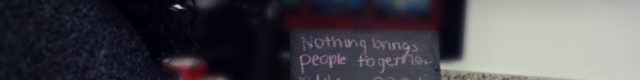 Nothing brings
people together